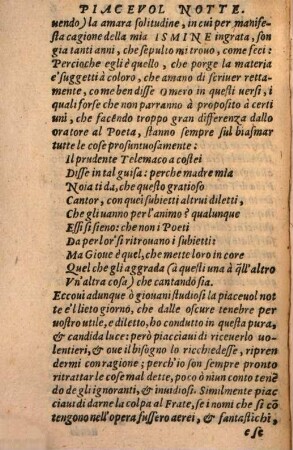 PIACEVOL NOTTE.
uendo) la amara solitudine, in cui per manife-
sta cagione della mia ISMINE ingrata, son
gia tanti anni, che sepulto mi trouo, come feci:
Percioche egli è quello, che porge la materia
e' suggetti à coloro, che amano di scriuer retta-
mente, come ben disse Omero in questi uersi, i
quali forse che non parranno à proposito à certi
uni, che facẽdo troppo gran differenza dallo
oratore al Poeta, stanno sempre sul biasmar
tutte le cose prosuntuosamente:
Il prudente Telemaco a costei
Disse in tal guisa: perche madre mia
Noia ti da, che questo gratioso
Cantor, con quei subietti altrui diletti,
Che gli uanno per l'animo? qualunque
Essi si sieno: che non i Poeti
Da per lor si ritrouano i subietti:
Ma Gioue è quel, che mette loro in core
Quel che gli aggrada (à questi una à q̃ll'altro
Vn'altra cosa) che cantando sia.
Eccoui adunque ò giouani studiosi la piaceuol not
te e'l lieto giorno, che dalle oscure tenebre per
uostro utile, e diletto, ho condutto in questa pura,
& candida luce: però piacciaui di riceuerlo uo-
lentieri, & oue il bisogno lo richiedesse, ripren
dermi con ragione; perch'io son sempre pronto
ritrattar le cose mal dette, poco ò niun conto tenẽ
do de gli ignoranti, & inuidiosi. Similmente piac
ciaui di darne la colpa al Frate, se i nomi che si cõ
tengono nell'opera sussero aerei, & fantastichi,
ese